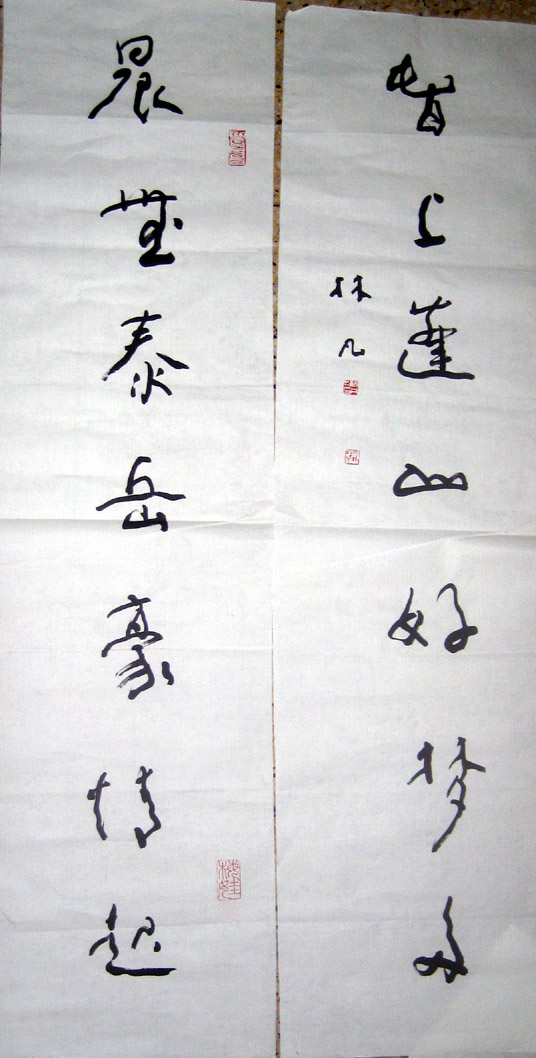 晨泰岳豪情起
上蓬山好梦多
林凡